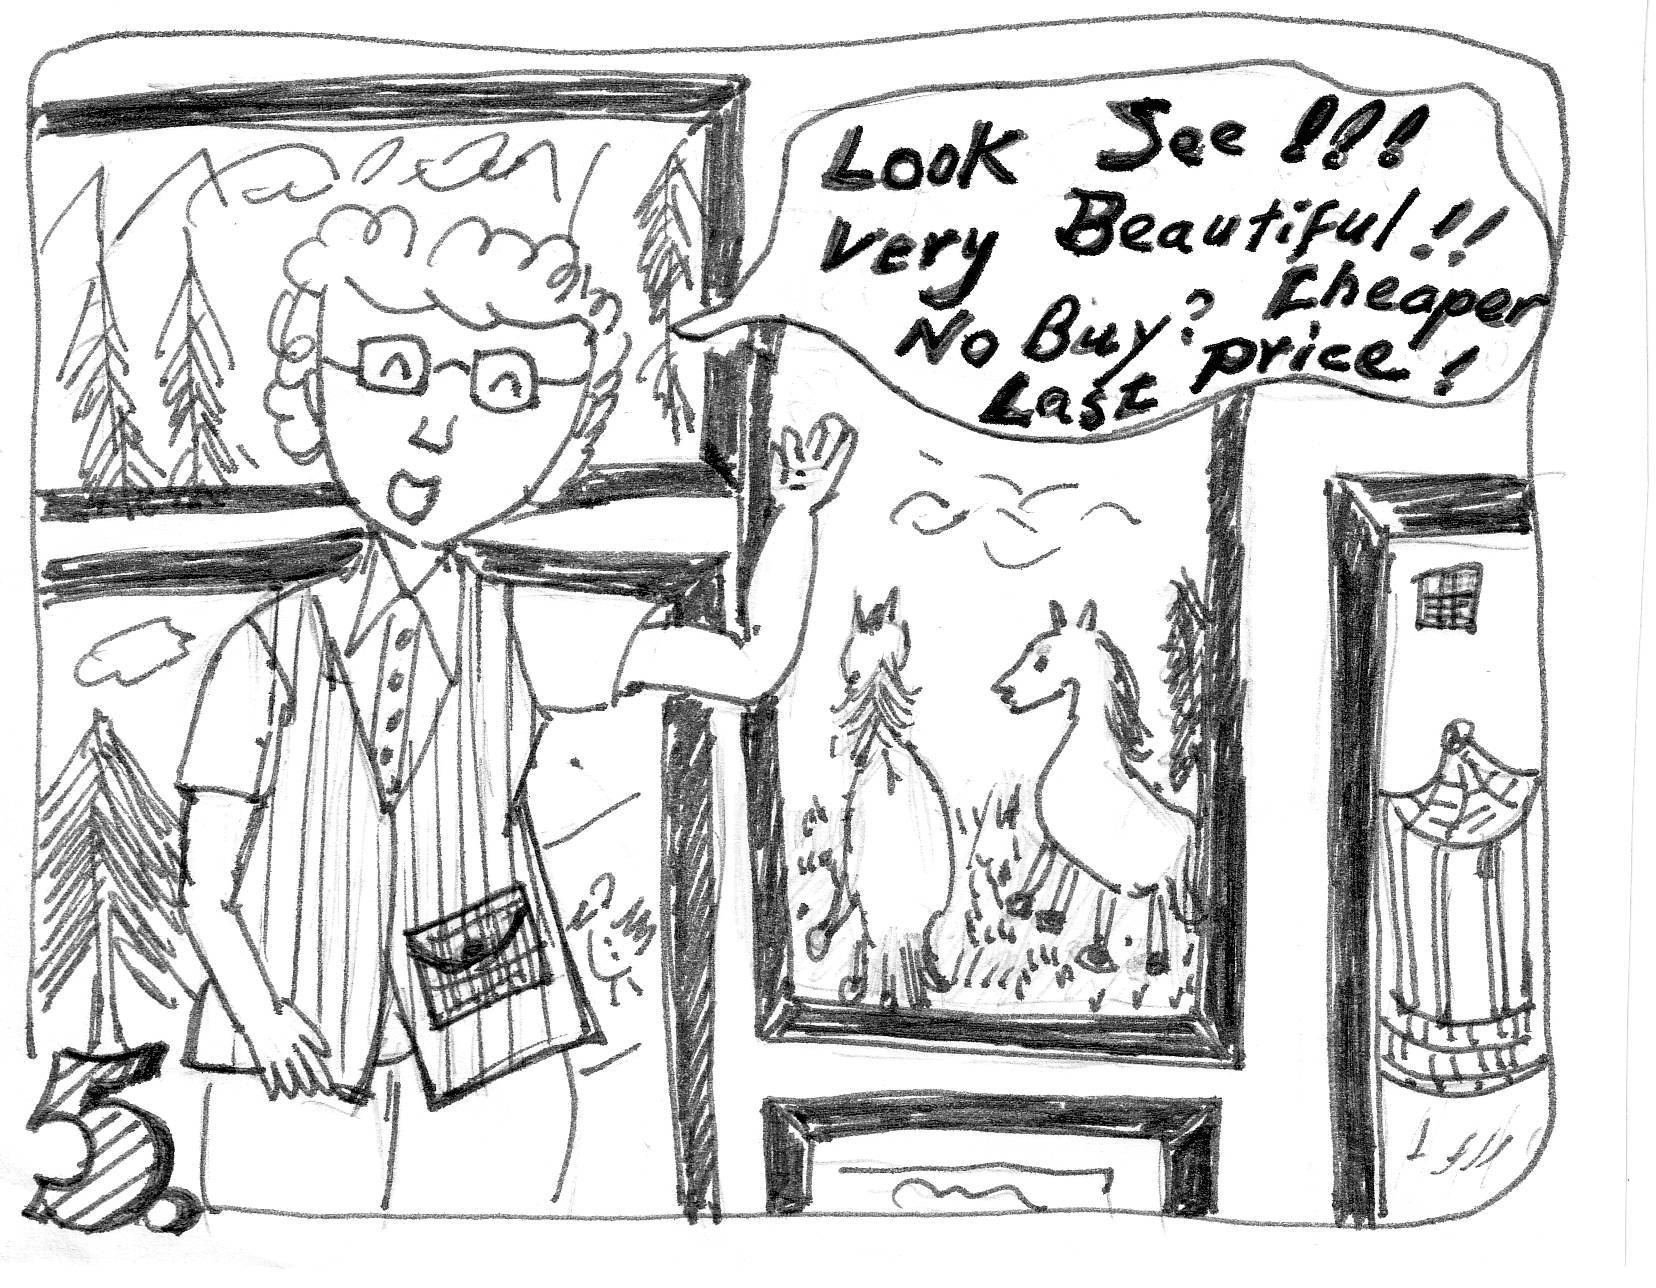 Look See !!!
Very Beautiful !!
No Buy? Cheaper
Last price !
5.